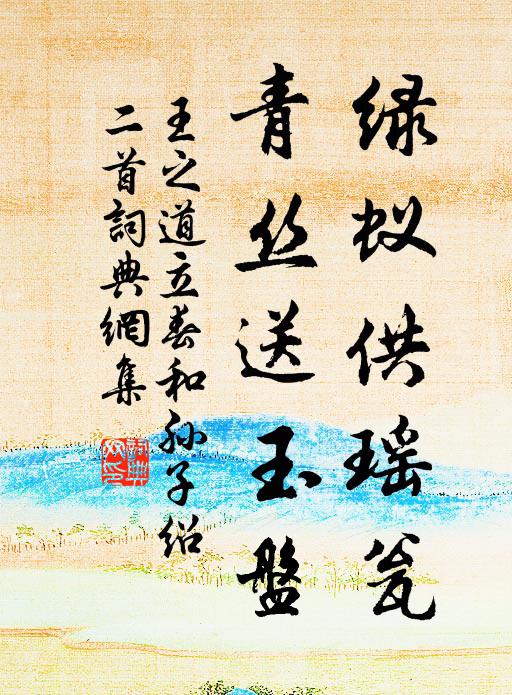 绿蚁供瑶瓮
青丝送玉盤
王之道立春和孙子绍
二首詞典網集